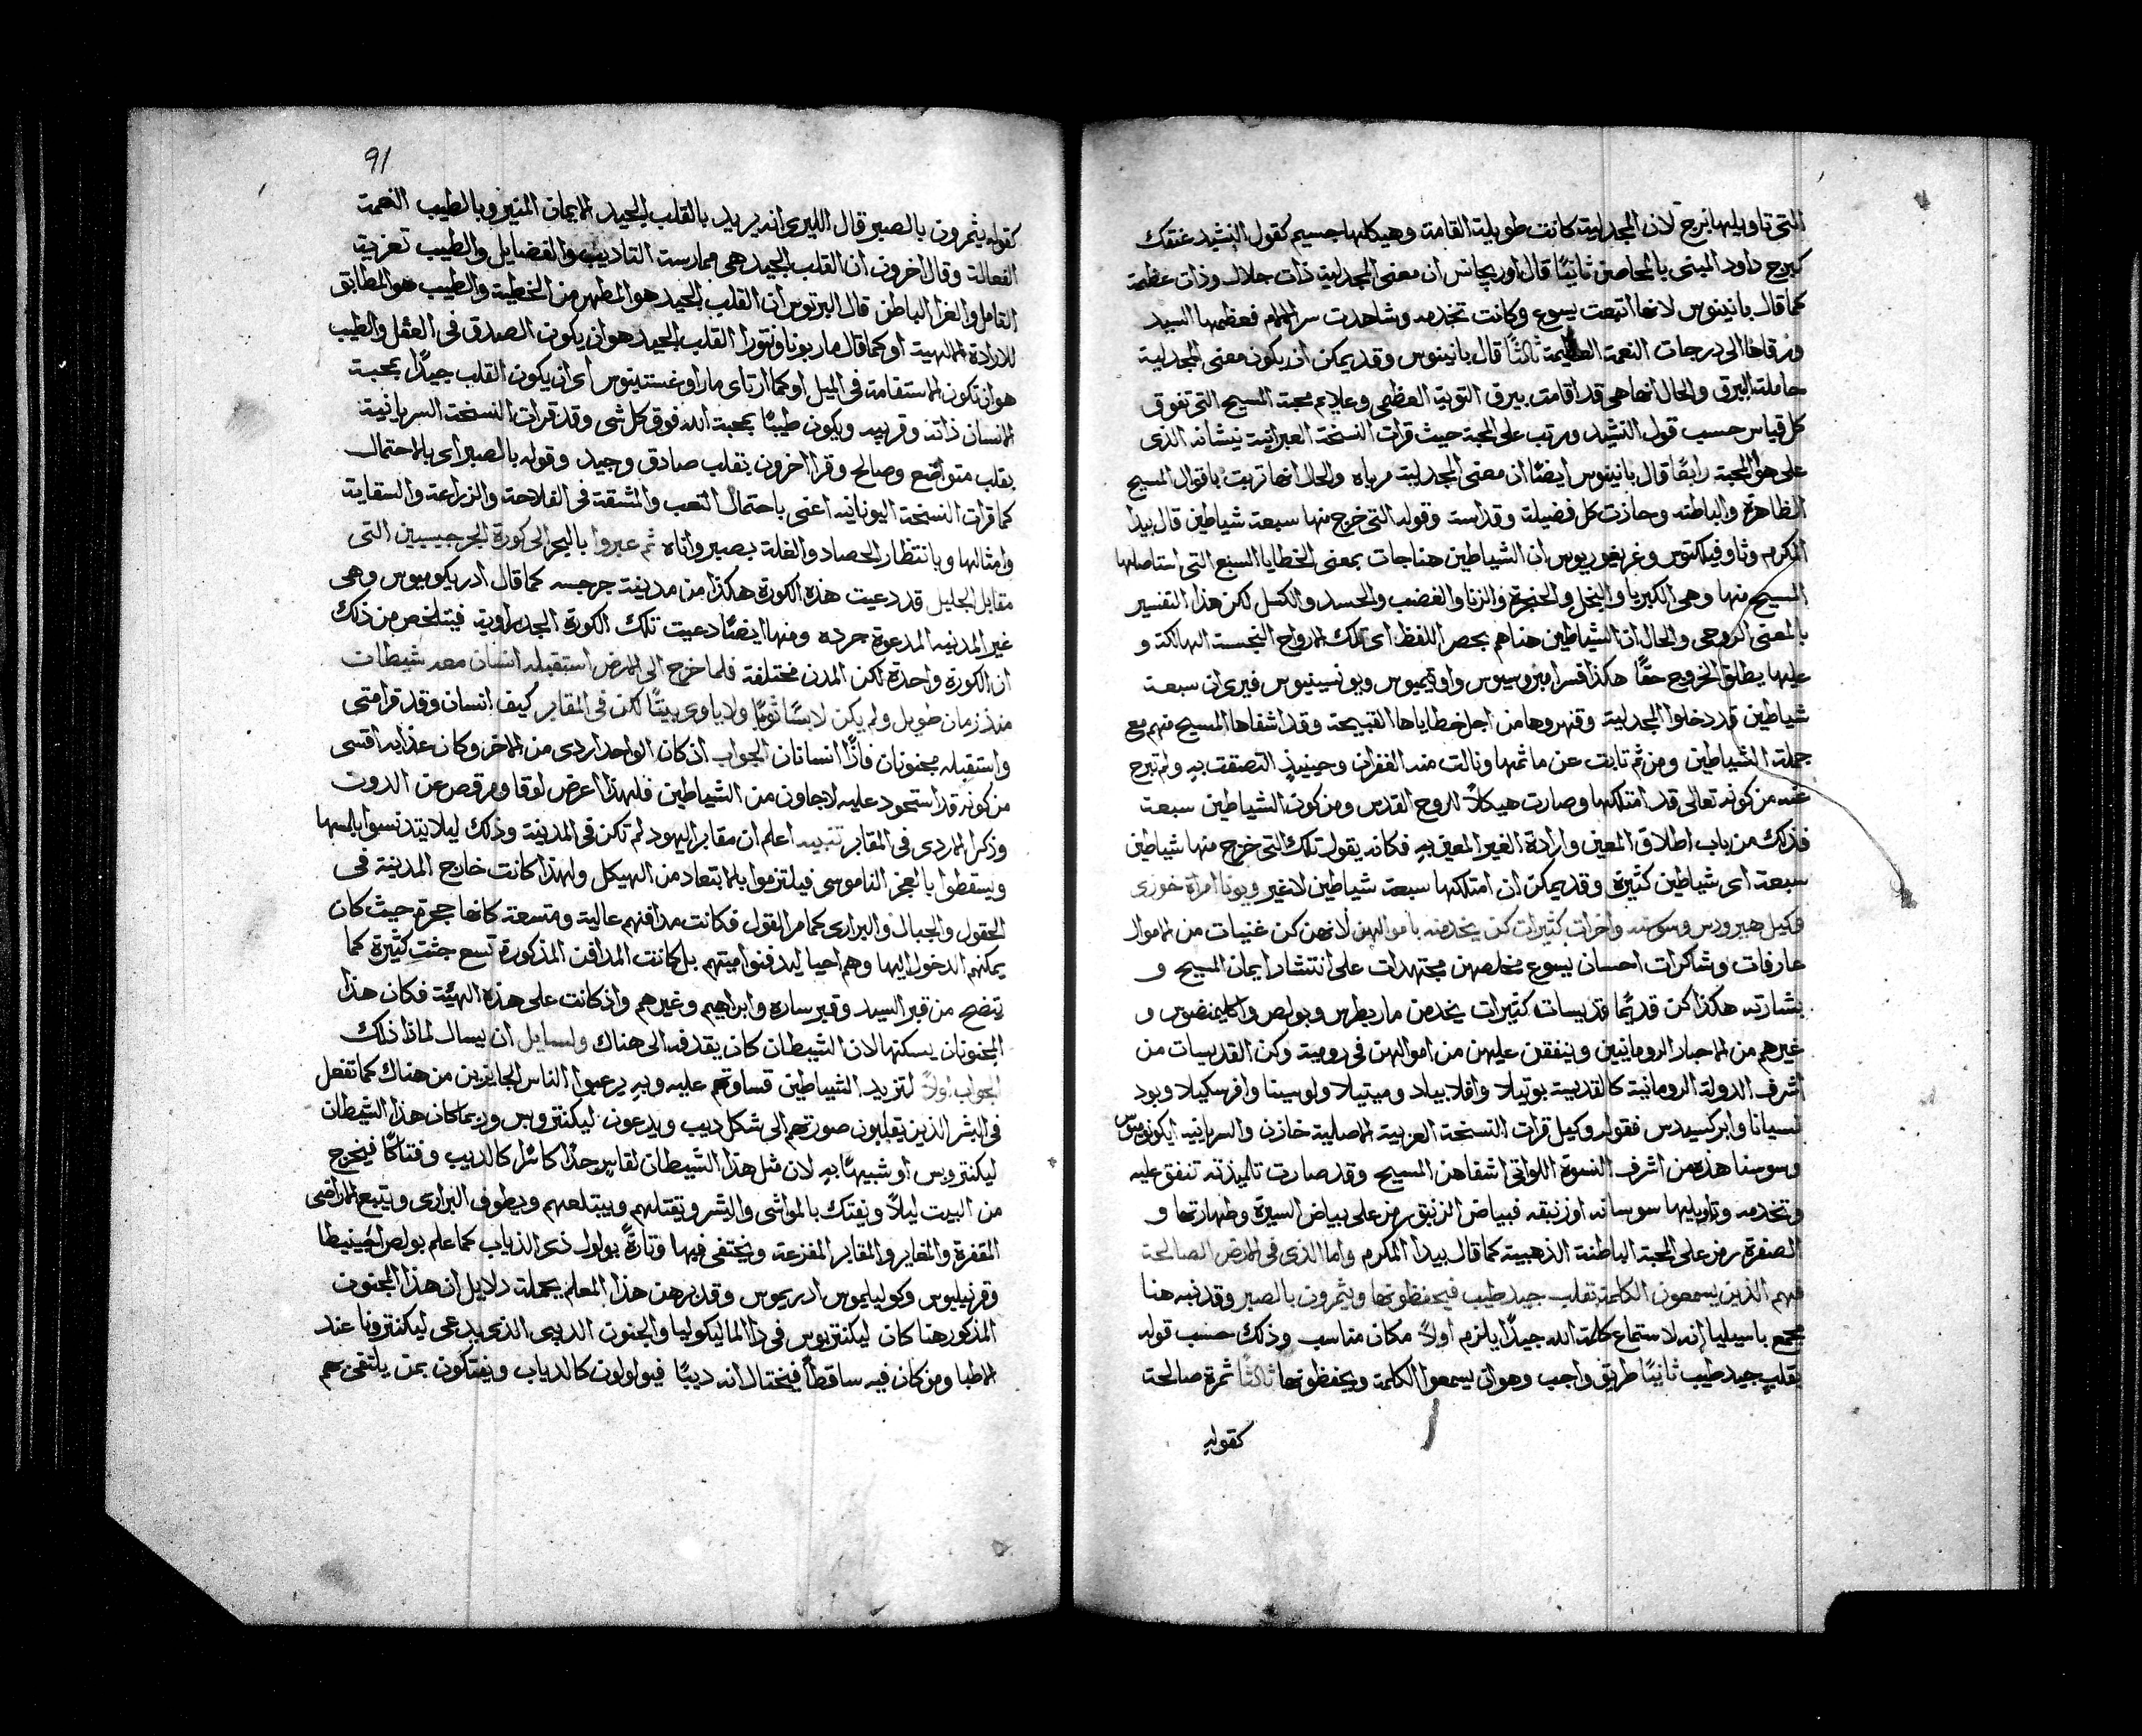 التي تاويلها برج لان المجدلية كانت طويلة القامة وهيكلها جسيم كقول النشيد عنقك
كبرج داود المبني بالمحاصن ثانيًا قال اوريجانس ان معنى المجدلية ذات جلال وذات عظمة
كما قال بانينوس لانها اتبعت يسوع وكانت تخدمه وشاهدت سر الالام فعظمها السيد
ورقاها الى درجات النعمة العظيمة ثالثًا قال بانينوس وقد يمكن ان يكون معنى المجدلية
حاملة البيرق والحال انها هي قد اقامت بيرق التوبة العظمى وعلايم محبة المسيح التي تفوق
كل قياس حسب قول النشيد ورتب على المحبة حيث قرات النسخة العبرانية نيشانه الذي
على هو المحبة رابعًا قال بانينوس ايضًا ان معنى المجدلية مرباه والحال انها تربت باقوال المسيح
الظاهرة والباطنه وحازت كل فضيلة وقداسة وقوله التي خرج منها سبعة شياطين قال بيدا
المكرم وثاوفيلكتوس وغريغوريوس ان الشياطين هنا جات بمعنى الخطايا السبع التي استاصلها
المسيح منها وهي الكبريا والبخل والحنجرة والزنا والغضب والحسد والكسل لكن هذا التفسير
بالمعنى الروحي والحال ان الشياطين هنا هم بحصر اللفظ اى تلك الارواح النجسة الهالكة و
عليها يطلق الخروج حقًا هكذا فسر امبروسيوس واوتيميوس وبونسينيوس فيرى ان سبعة
شياطين قد دخلوا المجدلية وقهروها من اجل خطاياها القبيحة وقد اشفاها المسيح منهم مع
جملة الشياطين ومن ثم تابت عن ماثمها ونالت منه الغفران وحينيذٍ التصقت به ولم تبرح
عنه من كونه تعالى قد امتلكها وصارت هيكلاً للروح القدس ومن كون الشياطين سبعة
فذلك من باب اطلاق المعين وارادة الغير المعين به فكانه يقول تلك التي خرج منها شياطين
سبعة اى شياطين كثيرة وقد يمكن ان امتلكها سبعة شياطين لا غير ويونا امراة خوزى
وكيل هيرودس وسوسنه واخرات كثيرات كن يخدمنه باموالهن لانهن كن غنيات من الاموال
عارفات وشاكرات احسان يسوع مخلصهن مجتهدات على انتشار ايمان المسيح و
بشارته هكذا كن قديمًا قديسات كثيرات يخدمن مار بطرس وبولص واكليمنضوس و
غيرهم من الاحبار الرومانيين وينفقن عليهن من اموالهن في رومية وكن القديسات من
اشرف الدولة الرومانية كالقديسة بوتيلا وافلابيلاد وميتيلا ولوسينا وافرسكيلا وبود
نسيانا وابركسيدس فقوله وكيل قرات النسخة العربية الاصلية خازن والسريانيه ايكونوموس
وسوسنا هذه من اشرف النسوة اللواتي اشفاهن المسيح وقد صارت تلميذته تنفق عليه
وتخدمه وتاويلها سوسانه او زنبقه فبياض الزنبق رمز على بياض السيرة وطهارتها و
الصفرة رمز على المحبة الباطنة الذهبية كما قال بيدا المكرم واما الذي في الارض الصالحة
فهم الذين يسمعون الكلمة بقلب جيد طيب فيحفظونها ويثمرون بالصبر وقد نبه هنا
مجمع باسيليا انه لاستماع كلمة الله جيدًا يلزم اولاً مكان مناسب وذلك حسب قوله
بقلبٍ جيد طيب ثانيًا طريق واجب وهو ان يسمعوا الكلمة ويحفظونها ثالثًا ثمرة صالحة
كقوله
91
كقوله يثمرون بالصبر قال الليرى انه يريد بالقلب الجيد الايمان المنير وبالطيب النعمة
الفعالة وقال اخرون ان القلب الجيد هي ممارسة التاديب والفضايل والطيب تعزية
القامل والغرا الباطن قال البرتوس ان القلب الجيد هو المطهر من الخطية والطيب هو المطابق
للارادة الالهية او كما قال مار بوناونتورا القلب الجيد هو ان يكون الصدق في العقل والطيب
هو ان تكون الاستقامة في الميل او كما ارتاى مار اوغستينوس اى ان يكون القلب جيدًا بمحبة
الانسان ذاته وقريبه ويكون طيبًا بمحبة الله فوق كل شي وقد قرات النسخة السريانية
بقلب متواضع وصالح وقرا اخرون بقلب صادق وجيد وقوله بالصبر اى بالاحتمال
كما قرات النسخة اليونانيه اعني باحتمال التعب والمشقة في الفلاحة والزراعة والسقاية
وامثالها وبانتظار الحصاد والغلة بصبر واناه ثم عبروا بالبحر الى كورة الجرجيسيين التي
مقابل الجليل قد دعيت هذه الكورة هكذا من مدينة جرجسه كما قال ادريكوميوس وهي
غير المدينه المدعوة جرده ومنها ايضًا دعيت تلك الكورة الجدراوية فيتلخص من ذلك
ان الكورة واحدة لكن المدن مختلفة فلما خرج الى الارض استقبله انسان معه شيطان
منذ زمان طويل ولم يكن لابسًا ثوبًا ولا ياوى بيتًا لكن في المقابر كيف انسان وقد قرا متى
واستقبله مجنونان فاذًا انسانان الجواب اذ كان الواحد اردى من الاخر وكان عذابه اقسى
من كونه قد استحود عليه لاجاون من الشياطين فلهذا اعرض لوقا ومرقوص عن الدون
وذكر الاردى في المقابر تنبيه اعلم ان مقابر اليهود لم تكن في المدينة وذلك ليلا يتدنسوا بلمسها
ويسقطوا بالعجز الناموسي فيلتزموا بالابتعاد من الهيكل ولهذا كانت خارج المدينة في
الحقول والجبال والبرارى كما مر القول فكانت مدافنهم عالية ومتسعة كانها حجرة حيث كان
يمكنهم الدخول اليها وهم احيا ليدفنوا ميتهم بل كانت المدافن المذكورة تسع جثث كثيرة كما
يتضح من قبر السيد وقبر ساره وابراهيم وغيرهم واذ كانت على هذه الهيئة فكان هذا
المجنونان يسكنها لان الشيطان كان يقدفه الى هناك ولسايل ان يسال لماذا ذلك
الجواب اولاً لتزيد الشياطين قساوتهم عليه وبه يرعبوا الناس الجايزين من هناك كما تفعل
في البشر الذين يقلبون صورتهم الى شكل ديب ويدعون ليكنتروبس وربما كان هذا الشيطان
ليكنتروبس او شبيهًا به لان مثل هذا الشيطان لقاسٍ جدًا كاسرًا كالديب وفتاكًا فيخرج
من البيت ليلاً ويفتك بالمواشي والبشر ويقتلهم ويبتلعهم ويطوف البرارى ويتبع الاراضي
المقفرة والمغاير والمقابر المفزعة ويختفي فيها وتارةً يولول ذى الذياب كما علم بولص اجينيطا
وقرنيليوس وكوليليموس ادريموس وقد برهن هذا المعلم بجملة دلايل ان هذا المجنون
المذكور هنا كان ليكنتربوس في ذا الماليكوليا والجنون الديبى الذي يدعى ليكنتروفيا عند
الاطبا ومن كان فيه ساقطًا فيختال انه ديبًا فيولولون كالدياب ويفتكون بمن يلتقى بهم